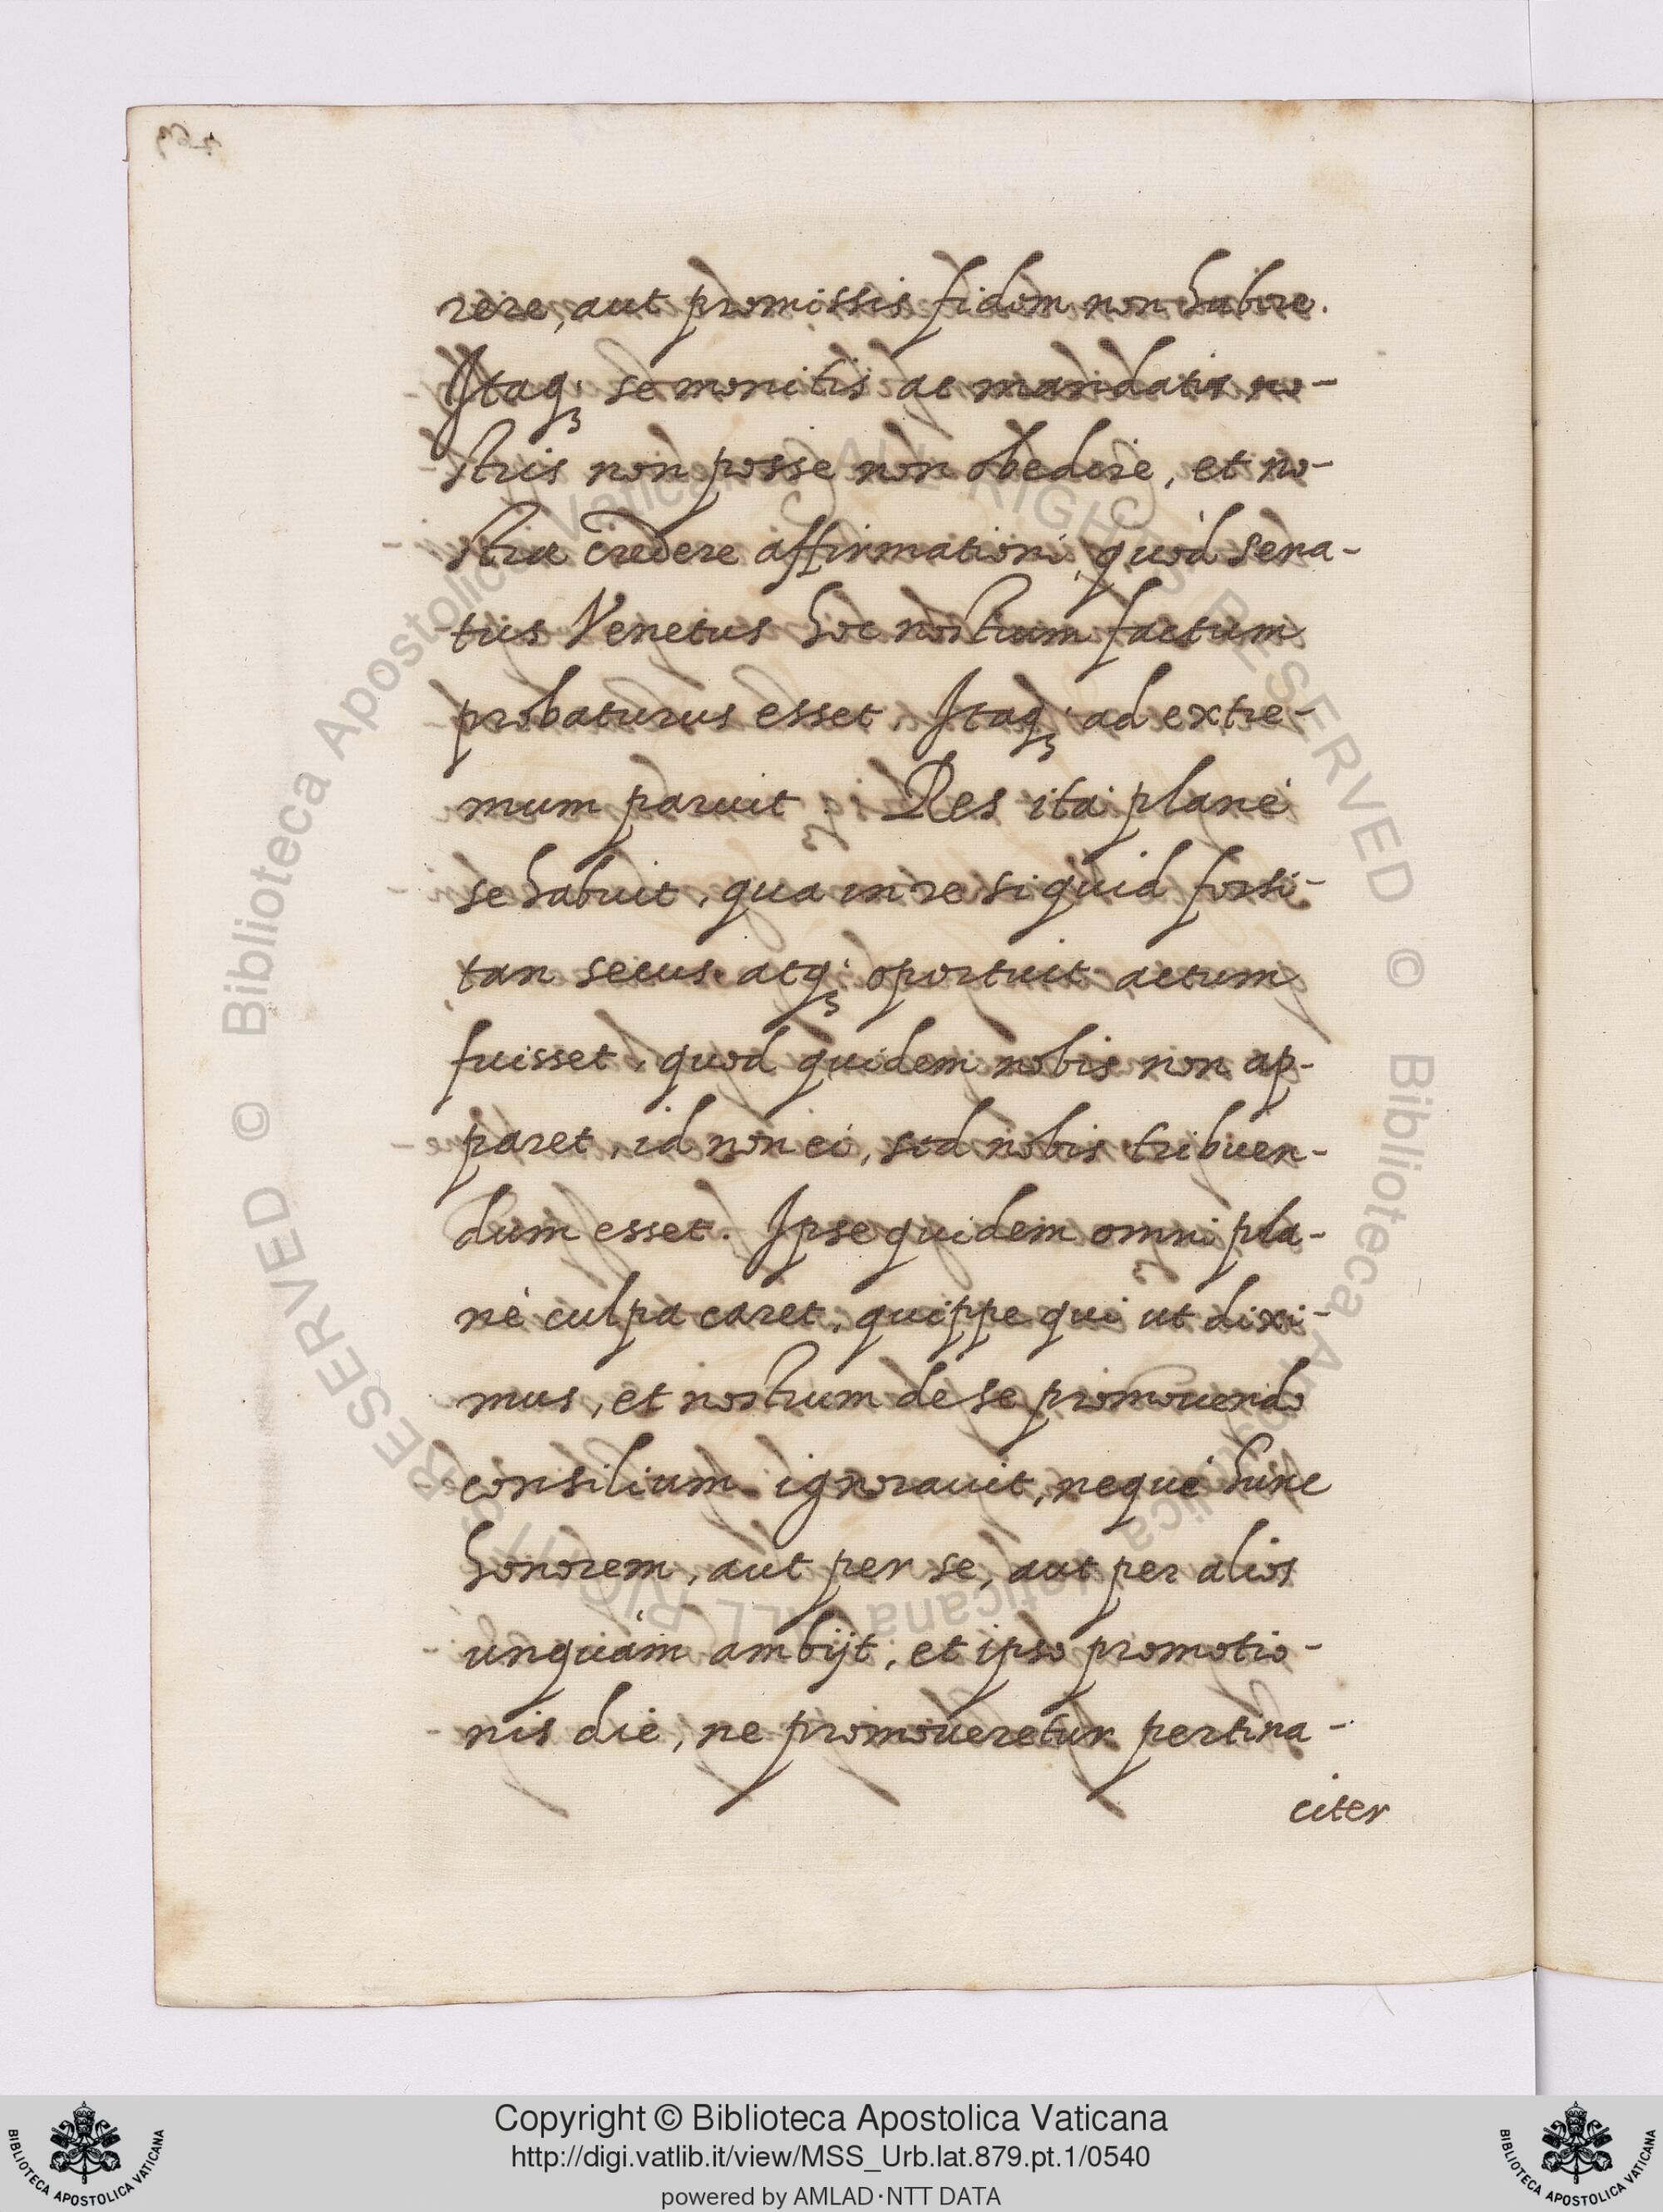 rere, aut promissis fidem non habere.
Itaq; se monitis ac mandatis no-
stris non posse non obedire, et no-
stræ credere affirmationi, quòd Sena-
tus Venetus hoc nostrum factum
probaturus esset. Itaq; ad extre-
mum paruit. Res ita planè
se habuit, qua in re si quid forsi-
tan secus atq; oportuit actum
fuisset, quod quidem nobis non ap-
paret, id non ei, sed nobis tribuen-
dum esset. Ipse quidem omni pla-
nè culpa caret, quippe qui ut dixi-
mus, et nostrum de se promouendo
consilium ignorauit, neque hunc
honorem, aut per se, aut per alios
unquàm ambijt, et ipso promotio-
nis die, ne promoueretur pertina-
citer
© Biblioteca Apostolica Vaticana ALL RIGHTS RESERVED © Biblioteca Apostolica Vaticana ALL RIGHTS RESERVED
BIBLIOTECA APOSTOLICA VATICANA
Copyright © Biblioteca Apostolica Vaticana
http://digi.vatlib.it/view/MSS_Urb.lat.879.pt.1/0540
powered by AMLAD·NTT DATA
BIBLIOTECA APOSTOLICA VATICANA